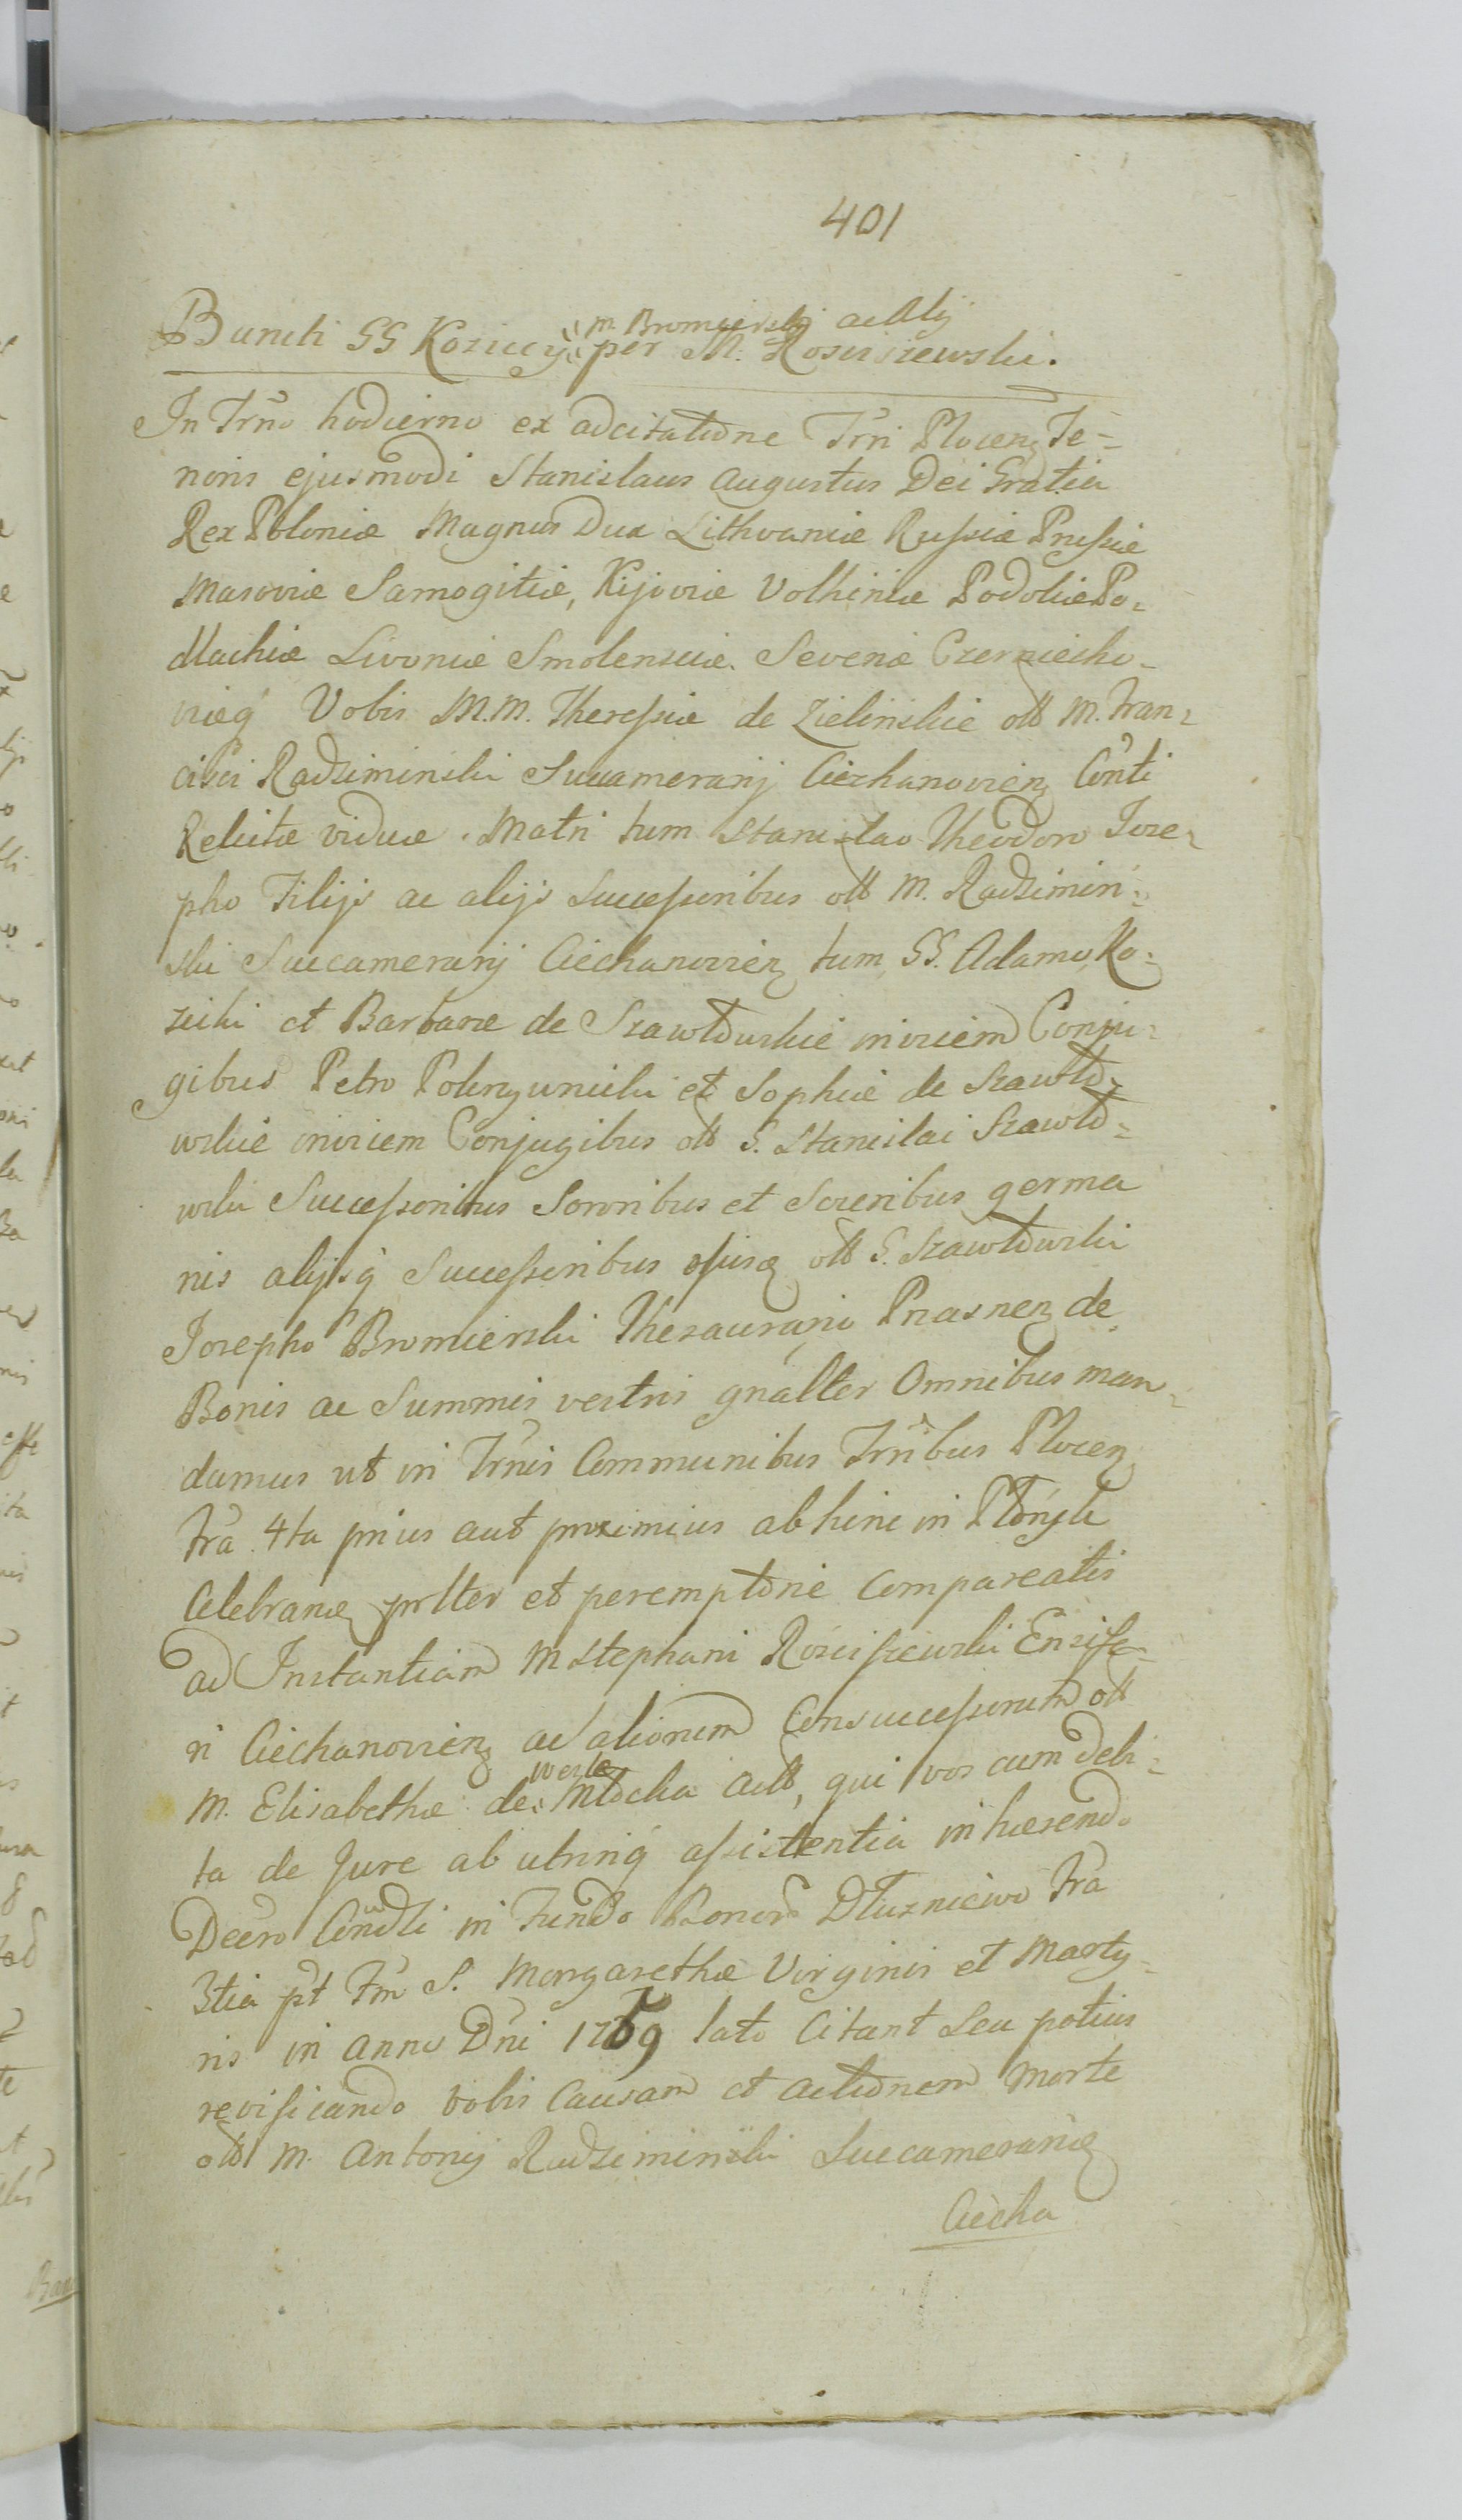 401
m. Bromierski ac Alij
Banniti SS Koziccy per M. Rosciszewski.
In Trno hodierno ex adcitatione Trri Plocen Te-
noris ejusmodi Stanislaus Augustus Dei Gratia
Rex Poloniæ Magnus Dux Lithvaniæ Russiæ Prussiæ
Masoviæ Samogitiæ, Kijoviæ Volhiniæ Podoliæ Po-
dlachiæ Livoniæ Smolensciæ Severiæ Czerniecho-
viæq Vobis M.M. Theressiæ de Zielinskie olt M. Fran-
cisci Radziminski Succamerarij Ciechanovien Conti
Relictæ viduæ. Matri tum Stanislao Theodoro Jose-
pho Filijs ac alijs Successoribus olt M. Radzimin-
ski Succamerarij Ciechanovien tum SS. Adamo Ko-
zicki et Barbaræ de Szawłowskie invicem Conju-
gibus Petro et Sophiæ de Szawło-
wskie invicem Conjugibus olt S. Stanislai Szawło-
wski Successoribus Sororibus et Sororibus germa
nis alijsq Successoribus ejusq olt S. Szawłowski
Josepho Bromierski Thesaurario Prasnen de
Bonis ac Summis vestris gnalter Omnibus man-
damus ut in Trnis Communibus Trribus Plocen
fra 4ta prius aut proximius abhinc in Płońsk
Celebran prlter et peremptorie Compareatis
ad Instantiam M Stephani Rościszewski Ensife-
ri Ciechanovien ac aliorum Consuccessorum olt
weste
M. Elisabethæ de Młocka Actt, qui vos cum debi-
ta de Jure ab utrinq assistentia inhærendo
Decro Condli in Fundo Bonor Dłużniewo fra
3tia pt Fm S. Margarethæ Virginis et Marty-
ris in anno Dni 1769 lato Citant seu potius
revificando vobis Causam et actionem morte
olt M. Antonij Radziminski Succamerarij
Ciecha